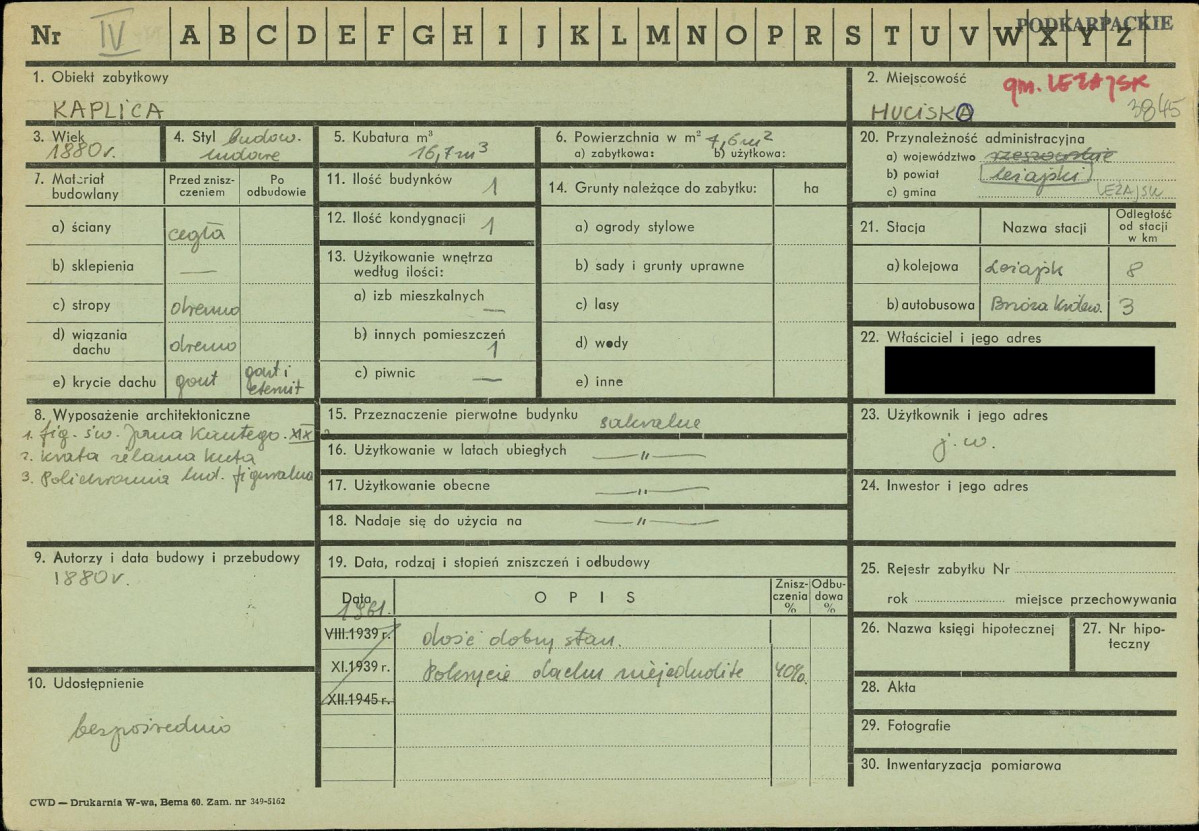 Nr IV A B C D E F G H I J K L M N O P R S T U V W X Y Z
PODKARPACKIE
1. Obiekt zabytkowy
KAPLICA
2. Miejscowość
gm. LEŻAJSK
HUCISKA
3845
3. Wiek
1880 r.
4. Styl budow.
ludowe
5. Kubatura m³
16,7 m³
6. Powierzchnia w m²
a) zabytkowa: b) użytkowa:
7. Materiał budowlany
Przed zniszczeniem
Po odbudowie
a) ściany cegła
b) sklepienia —
c) stropy drewno
d) wiązania dachu drewno
e) krycie dachu gont gont i eternit
8. Wyposażenie architektoniczne
1. fig. św. Jana Kantego. XIX
2. Krata żelazna kuta
3. Polichromia lud. figuralna
9. Autorzy i data budowy i przebudowy
1880 r.
10. Udostępnienie
bezpośrednio
11. Ilość budynków 1
12. Ilość kondygnacji 1
13. Użytkowanie wnętrza według ilości:
a) izb mieszkalnych —
b) innych pomieszczeń 1
c) piwnic —
14. Grunty należące do zabytku: ha
a) ogrody stylowe
b) sady i grunty uprawne
c) lasy
d) wody
e) inne
15. Przeznaczenie pierwotne budynku sakralne
16. Użytkowanie w latach ubiegłych —"—
17. Użytkowanie obecne —"—
18. Nadaje się do użycia na —"—
19. Data, rodzaj i stopień zniszczeń i odbudowy
Data O P I S Zniszczenia % Odbudowa %
1961.
VIII.1939 r. dość dobry stan.
XI.1939 r. Pokrycie dachu niejednolite 40%
XII.1945 r.
20. Przynależność administracyjna
a) województwo rzeszowskie
b) powiat leżajski
c) gmina LEŻAJSK
21. Stacja Nazwa stacji Odległość od stacji w km
a) kolejowa Leżajsk 8
b) autobusowa Brzóza Królew. 3
22. Właściciel i jego adres
23. Użytkownik i jego adres
j. w.
24. Inwestor i jego adres
25. Rejestr zabytku Nr
rok miejsce przechowywania
26. Nazwa księgi hipotecznej
27. Nr hipoteczny
28. Akta
29. Fotografie
30. Inwentaryzacja pomiarowa
CWD — Drukarnia W-wa, Bema 60. Zam. nr 349-5162